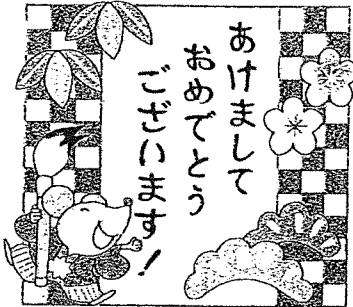 あけまして
おめでとう
ございます!